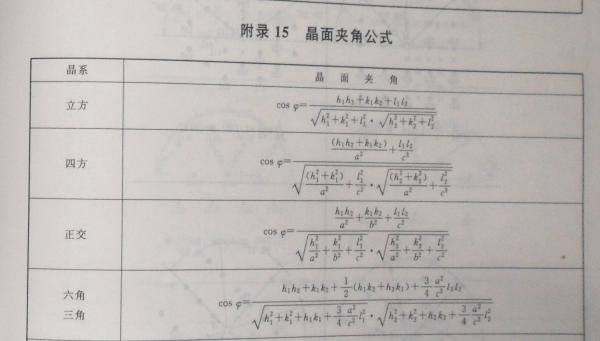 附录 15 晶面夹角公式
晶系 晶面夹角
立方 cos φ = \frac{h_1h_2+k_1k_2+l_1l_2}{\sqrt{h_1^2+k_1^2+l_1^2}·\sqrt{h_2^2+k_2^2+l_2^2}}
四方 cos φ = \frac{\frac{(h_1h_2+k_1k_2)}{a^2}+\frac{l_1l_2}{c^2}}{\sqrt{\frac{(h_1^2+k_1^2)}{a^2}+\frac{l_1^2}{c^2}}·\sqrt{\frac{(h_2^2+k_2^2)}{a^2}+\frac{l_2^2}{c^2}}}
正交 cos φ = \frac{\frac{h_1h_2}{a^2}+\frac{k_1k_2}{b^2}+\frac{l_1l_2}{c^2}}{\sqrt{\frac{h_1^2}{a^2}+\frac{k_1^2}{b^2}+\frac{l_1^2}{c^2}}·\sqrt{\frac{h_2^2}{a^2}+\frac{k_2^2}{b^2}+\frac{l_2^2}{c^2}}}
六角
三角 cos φ = \frac{h_1h_2+k_1k_2+\frac{1}{2}(h_1k_2+h_2k_1)+\frac{3}{4}\frac{a^2}{c^2}l_1l_2}{\sqrt{h_1^2+k_1^2+h_1k_1+\frac{3}{4}\frac{a^2}{c^2}l_1^2}·\sqrt{h_2^2+k_2^2+h_2k_2+\frac{3}{4}\frac{a^2}{c^2}l_2^2}}